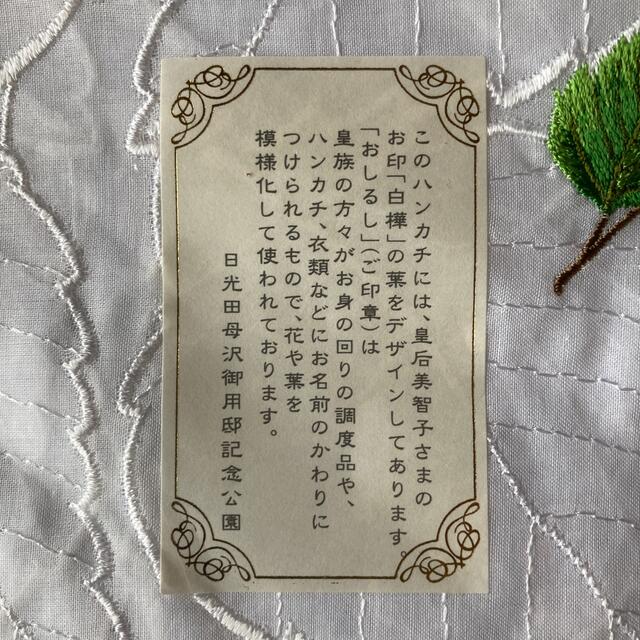 このハンカチには、皇后美智子さまの
お印「白樺」の葉をデザインしてあります。
「おしるし」（ご印章）は
皇族の方々がお身の回りの調度品や、
ハンカチ、衣類などにお名前のかわりに
つけられるもので、花や葉を
模様化して使われております。
日光田母沢御用邸記念公園